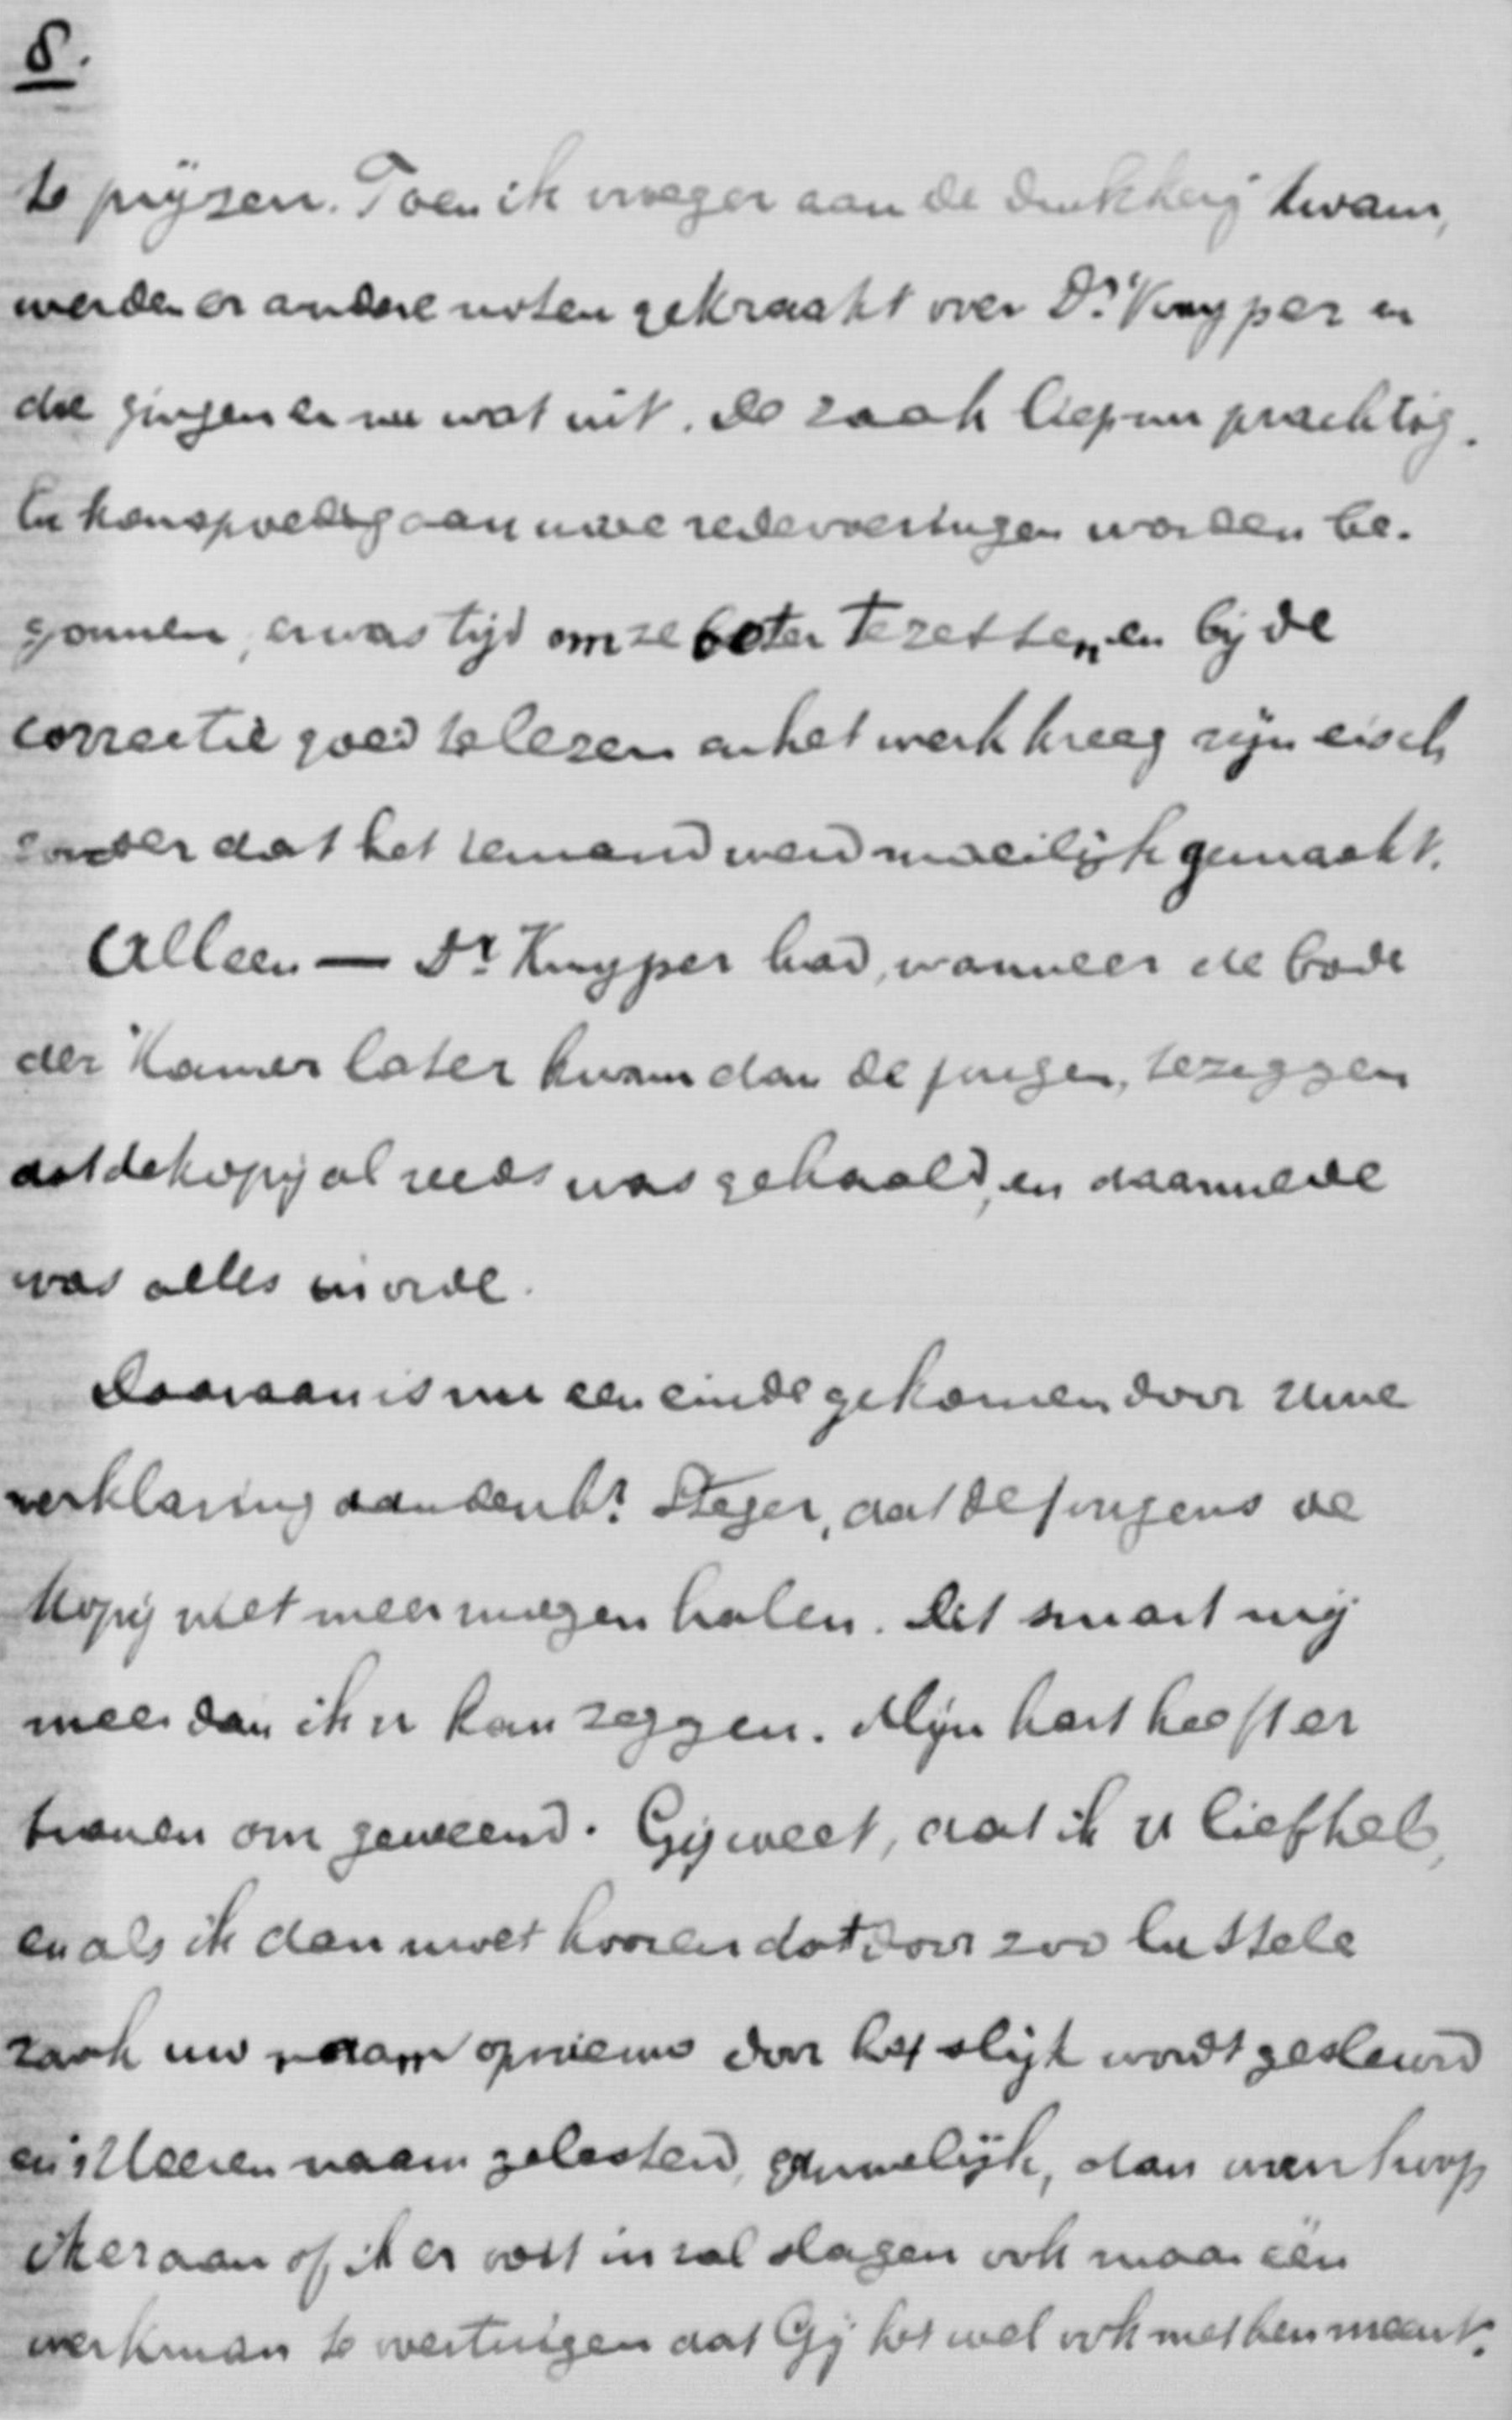 8.
te prijzen. Toen ik vroeger aan de drukkerij kwam,
werden er andere noten gekraakt over Dr. Kuyper en
die gingen er nu wat uit. De zaak liep nu prachtig.
Er kon spoedig aan uwe redevoeringen worden be-
gonnen, er was tijd om ze beter te zetten, en bij de
correctie goed te lezen en het werk kreeg zijn eisch
zonder dat het iemand werd moeilijk gemaakt.
Alleen — Dr. Kuyper had, wanneer de bode
der Kamer later kwam dan de jongen, te zeggen
dat de kopij al reeds was gehaald, en daarmede
was alles in orde.
Daaraan is nu een einde gekomen door Uwe
verklaring aan den hr. Steger, dat de jongens de
kopij niet meer mogen halen. Dit smart mij
meer dan ik u kan zeggen. Mijn hart heeft er
tranen om geweend. Gij weet, dat ik U liefheb,
en als ik dan moet hooren dat door zoo luttele
zaak uw naam opnieuw door het slijk wordt gesleurd
en 's Heeren naam gelasterd, gruwelijk, dan wanhoop
ik eraan of ik er ooit in zal slagen ook maar één
werkman te overtuigen dat Gij het wel ook met hen meent.